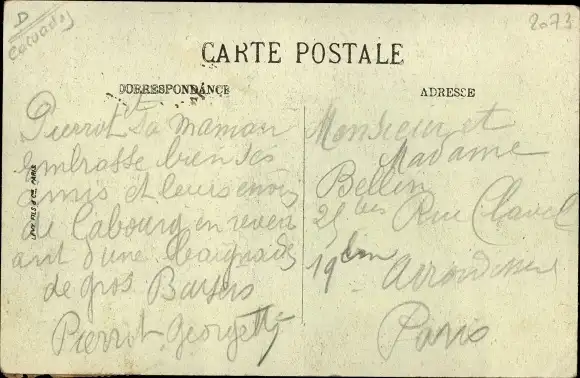 D
Calvados
2073
CARTE POSTALE
CORRESPONDANCE
ADRESSE
Pierrot Sa maman
embrasse bien ses
amis et leurs envois
de Cabourg en reven
ant d'une baignade
de gros Baisers
Pierrot Georgette
LEVY FILS & Cie PARIS
Monsieur et
Madame
Bellen
25 bis Rue Clavel
19 em Arrondisseme
Paris